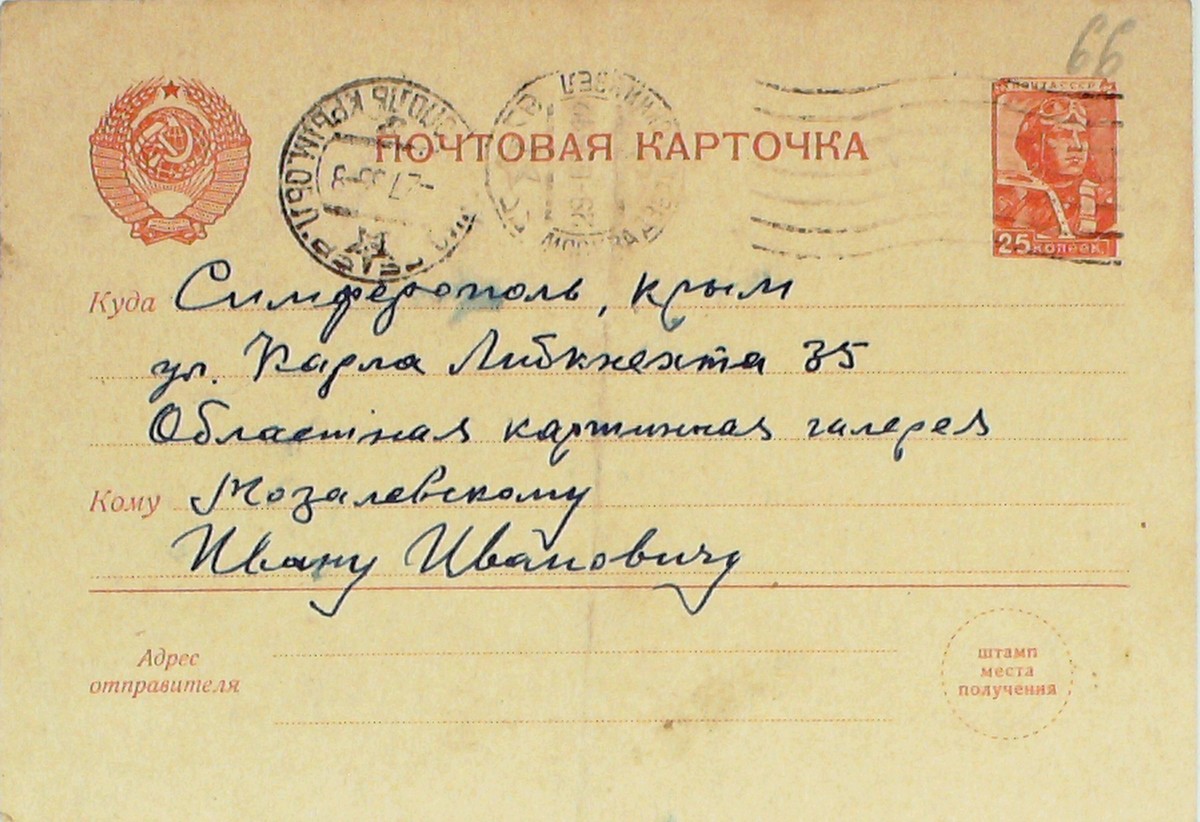 66
ПОЧТА СССР
ПОЧТОВАЯ КАРТОЧКА
МОСКВА
25 КОПЕЕК
Куда Симферополь, Крым
ул. Карла Либкнехта 35
Областная картинная галерея
Кому Мозалевскому
Ивану Ивановичу
Адрес
отправителя
штамп
места
получения